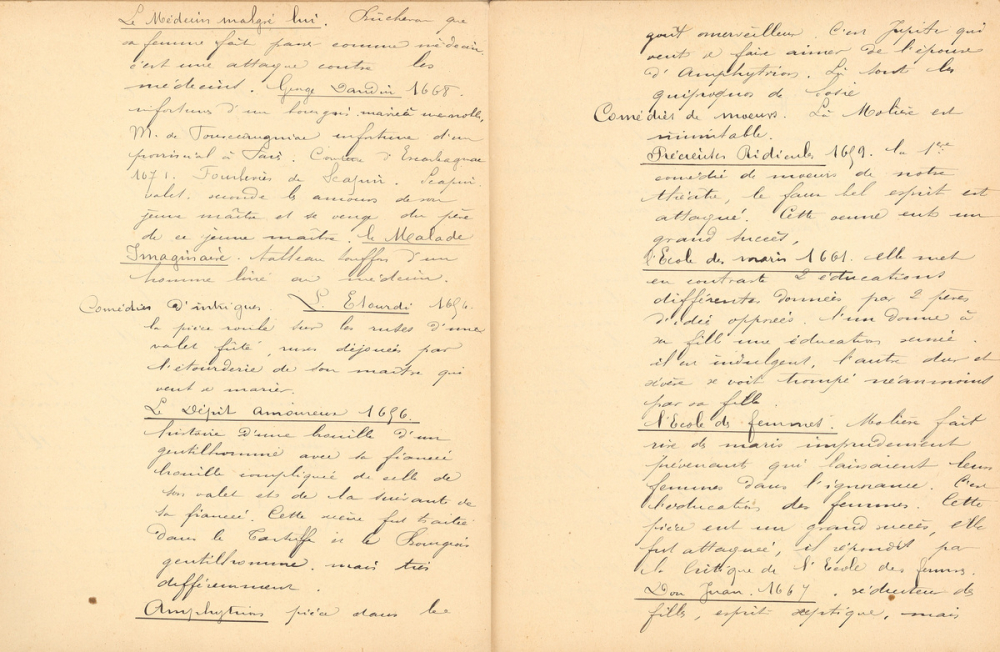 Le Médecin malgré lui. Bûcheron que
sa femme fait passer comme médecin
c'est une attaque contre les
médecins. George Dandin 1668.
infortunes d'un bourgeois marié à une noble,
M. de Pourceaugnac infortune d'un
provincial à Paris. Comtesse d'Escarbagnac
1671. Fourberies de Scapin. Scapin
valet. seconde les amours de son
jeune maître et se venge du père
de ce jeune maître. le Malade
Imaginaire. tableau bouffon d'un
homme livré au médecin.
Comédies d'intrigues. L'Etourdi 1656.
la pièce roule sur les ruses d'une
valet futé, ruses déjouées par
l'étourderie de son maître qui
veut se marier.
Le Dépit Amoureux 1656.
histoire d'une brouille d'un
gentilhomme avec sa fiancée
brouille compliquée de celle de
son valet et de la suivante de
sa fiancée. Cette scène fut traitée
dans le Tartuffe et le Bourgeois
gentilhomme. mais très
différemment.
Amphytrion pièce dans le
goût merveilleux. C'est Jupiter qui
veut se faire aimer de l'épouse
d'Amphytrion. Là sont les
quiproquos de
Comédies de moeurs. Là Molière est
inimitable.
Précieuses Ridicules 1659. la 1ère
comédie de moeurs de notre
théâtre, le faux bel esprit est
attaqué. Cette oeuvre eut un
grand succès,
l'Ecole des maris 1661. elle met
en contraste 2 éducations
différentes données par 2 pères
d'idée opposées. l'un donne à
sa fille une éducation
il est indulgent, l'autre dur et
sévère se voit trompé néanmoins
par sa fille.
l'Ecole des femmes. Molière fait
rire des maris imprudement
prévenant qui laissaient leurs
femmes dans l'ignorance. C'est
l'éducation des femmes. Cette
pièce eut un grand succès, elle
fut attaquée, il répondit par
la Critique de l'Ecole des femmes.
Don Juan. 1667. séducteur de
filles, esprit septique, mais